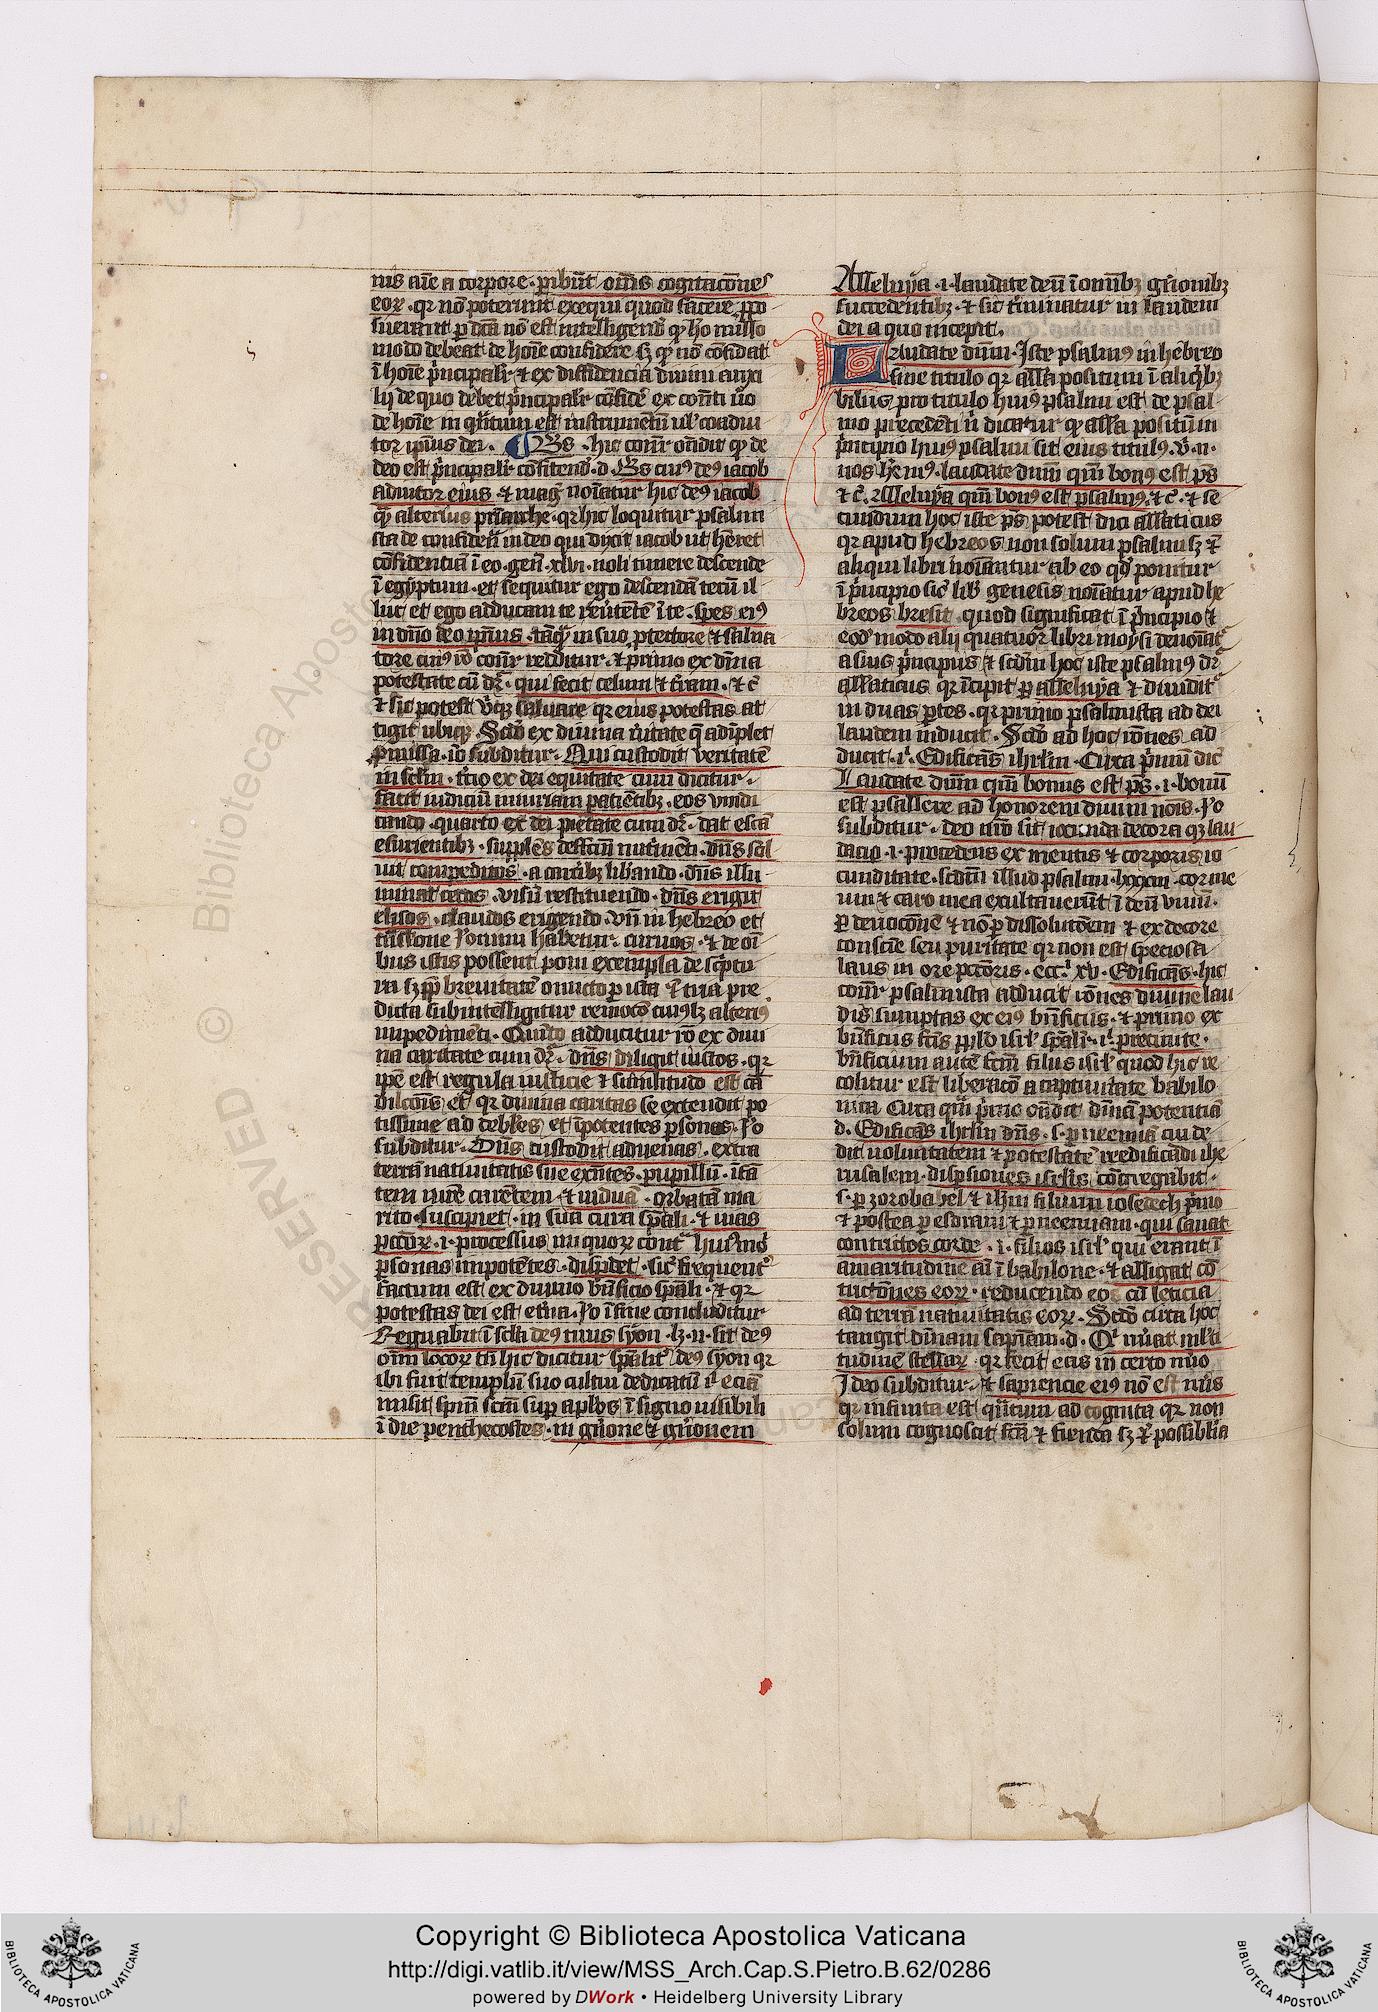 nis aīe a corpore · ꝑibūt oīns cogitacōnes
eoꝝ · qꝛ nō poterunt exequi quod facere ꝓpo
suerant ꝑ dc̄a nō est intelligenđ qꝫ ho nullo
modo debeat de hoīe confidere sꝫ qꝫ nō cōfidat
ī hoīe p̄ncipalr̄ ⁊ ex diffidencia diuini auxi
lij de quo debet p̄ncipalr̄ cōfidē ex con̄ti ūo
de hoīe in q̄ntum est instrumētū ul' coadiu
tor ipīus dei · Bs · hic con̄r on̄dit qꝫ de
deo est p̄ncipalr̄ cōfitenđ · d Bs cuiꝰ deꝰ iacob
adiutor eius · ⁊ mag̃ noīatur hic deꝰ iacob
qꝫ alterius pr̄iarche · qꝛ hic loquitur psalmi
sta de confidēn̄ in deo qui dixit iacob ut hēret
cōfidenciā ī eo · gen̄ · xlvi · noli timere descende
ī egyptum · et sequitur ego descendā tecū il
luc et ego adducam te reūtētē īte · Spes eiꝰ
in dn̄o deo ip̄ius · tāqꝫ in suo ꝓtectore ⁊ salua
tore cuiꝰ rō con̄r redditur · ⁊ primo ex dīna
potestate cū dr̄ · qui fecit celum ⁊ t̄ram · ⁊ c̄
⁊ sic potest vbiqꝫ saluare qꝛ eius potestas at
tigit ubiqꝫ · Scđo ex diuina ūitate q̄ adīplet
ꝓmissa · iō subditur · Qui custodit veritatē
in sc̄lm · t̄cio ex dei equitate cum dicitur ·
facit iudiciū iniuriam patiētibꝫ · eos vindi
cando · quarto ex dei pietate cum dr̄ · dat escā
esurientibꝫ · supplēs defc̄m nutrim̄ti · dn̄s sol
uit compeditos · a carc̄ibꝫ lib̄ando · dn̄s illu
minat cecos · visū restituendo · dn̄s erigit
elisos · claudos erigendo · Vn̄ in hebreo et
trāsl̄one Ieronimi habetur · curuos · ⁊ de oī
bus istis possent poni exempla de sc̄ptu
ra sꝫ ꝓp̄ breuitatē omitto ꝑ ista ⁊ īra pre
dicta subintelligitur remoc̄o cuiuslꝫ alteriꝰ
impedim̄ti · Quīto adducitur rō ex diui
na caritate cum dr̄ · dn̄s diligit iustos · qꝛ
ipē est regula iusticie ⁊ similitudo est cā
dilcōnis et qꝛ diuina caritas se extendit po
tissime ad debiles et īpotentes ꝑsonas · Iō
subditur · Dn̄s custodit aduenas · extra
terrā natiuitatis sue exn̄tes · pupillū · ītā
tem iure carētem · ⁊ viduā · orbatā ma
rito · suscipiet · in sua cura spāli · ⁊ uias
pctōꝝ · i · processus iniquoꝝ cont̄ · huiꝰmōi
ꝑsonas impotētes · disꝑdet · sic frequenter
factum est ex diuino b̄nficio spāli · ⁊ qꝛ
potestas dei est etn̄a · Iō ī fine concluditur
Regnabit ī scl̄a deꝰ tuus syon · lꝫ · n · sit deꝰ
oīm locoꝝ tn̄ hic dicitur spālit̄ deꝰ syon qꝛ
ibi fuit templū suo cultui dedicatū ⁊ eciā
misit spm̄ sc̄m suꝑ aplos ī signo uisibili
ī die penthecostes · in gn̄one ⁊ gn̄onem
Alleluya · i · laudate deū ī omībꝫ gn̄onibꝫ
succedentibꝫ · ⁊ sic t̄minatur in laudem
dei a quo incepit ·
Laudate dn̄m · Iste psalmꝰ in hebreo
sine titulo qꝛ all̄a positum ī aliq̄bꝫ
bilius pro titulo huiꝰ psalmi est de psal
mo precedēti ul̄ dicatur qꝫ all̄a positum in
p̄ncipio huiꝰ psalmi sit eius titulꝰ · ubi · n ·
nos hēmꝰ · laudate dn̄m qm̄ bonꝰ est ps̄
⁊ c̄ · Alleluya qm̄ bonꝰ est psalmꝰ · ⁊ c̄ · ⁊ se
cundum hoc iste ps̄ potest dici all̄aticus
qꝛ apud hebreos non solum psalmi sꝫ ⁊
aliqui libri noīantur ab eo qđ ponitur
ī p̄ncipio sic lib̄ genesis noīatur apud he
breos bresit quod significat ī p̄ncipio ⁊
eodē modo alij quatuor libri moysi denoīat̄
a suis p̄ncipiis ⁊ scđm hoc iste psalmꝰ dr̄
all̄aticus qꝛ īcipit ꝑ alleluya ⁊ diuidit̄
in duas ꝑtes · qꝛ primo psalmista ad dei
laudem inducit · Scđo ad hoc rōnes ad
ducit · iƀ · Edificās ihrlm · Circa p̄mū dic̄
Laudate dn̄m qm̄ bonus est ps̄ · i · bonū
est psallere ad honorem diuini nōis · Iō
subditur · deo nr̄o sit iocunda decora qꝫ lau
dacio · i · procedens ex mentis ⁊ corporis io
cunditate · scđm illud psalmi · lxxxiii · cor me
um ⁊ caro mea exultauerūt ī deū viuū ·
ꝑ deuocionē ⁊ nō ꝑ dissolutōem ⁊ ex decore
consciē seu puritate qꝛ non est speciosa
laus in ore pctōris · ecc̄i · xv · Edificās · hic
con̄r psalmista adducit rōnes diuine lau
dis sumptas ex eiꝰ b̄nficiis · ⁊ primo ex
b̄nficiis fc̄is ppl̄o isrl̄ spāli · iƀ · precinite ·
b̄nficium autē fc̄m filiis isrl̄ quod hic re
colitur est liberacō a captiuitate babilo
nica Circa qđ p̄mo on̄dit diuinā potentiā
d · Edificās ihrlm dn̄s · s · ꝑ neemiā cui de
dit uoluntatem ⁊ potestatē reedificādi ihe
rusalem · disꝑsiones isrl̄is cōgregabit ·
s · ꝑ zorobabel ⁊ ihm filium iosedech p̄mo
⁊ postea ꝑ esdram ⁊ ꝑ neemiam · qui sanat
contritos corde · i · filios isrl̄ qui erant ī
amaritudine aīi ī babilone · ⁊ alligat cō
trictōnes eoꝝ · reducendo eos cū leticia
ad terrā natiuitatis eoꝝ · Scđo circa hoc
tangit diuinam sapīam · d · Qi nūat mlti
tudinē stellaꝝ · qꝛ fecit eas in certo nūo
Ideo subditur · ⁊ sapiencie eiꝰ nō est nūs
qꝛ infinita est q̄ntum ad cognita qꝛ non
solum cognoscit fc̄a ⁊ fienda sꝫ ⁊ possibilia
Copyright © Biblioteca Apostolica Vaticana
http://digi.vatlib.it/view/MSS_Arch.Cap.S.Pietro.B.62/0286
powered by DWork • Heidelberg University Library
BIBLIOTECA APOSTOLICA VATICANA
BIBLIOTECA APOSTOLICA VATICANA